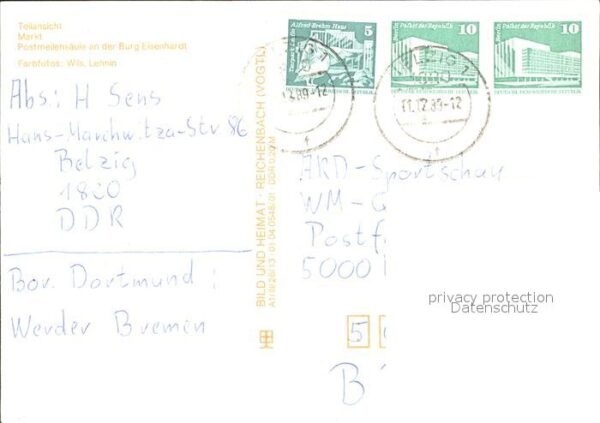 Teilansicht
Markt
Postmeilensäule an der Burg Eisenhardt
Farbfotos: Wils, Lehnin
Abs: H Sens
Hans-Marchwitza-Str 86
Belzig
1820
DDR
Bor. Dortmund :
Werder Bremen
BILD UND HEIMAT · REICHENBACH (VOGTL)
A1/B/26/13 01 04 0548/01 DDR 0,20 M
Alfred-Brehm-Haus
Tierpark Berlin
5
Berlin, Palast der Republik
10
Berlin, Palast der Republik
10
DEUTSCHE DEMOKRATISCHE REPUBLIK
DEUTSCHE DEMOKRATISCHE REPUBLIK
BELZIG 1
12.89-12
BELZIG 1
11.12.89-12
ARD-Sportschau
WM-
Postf
5000
privacy protection
Datenschutz
5
B